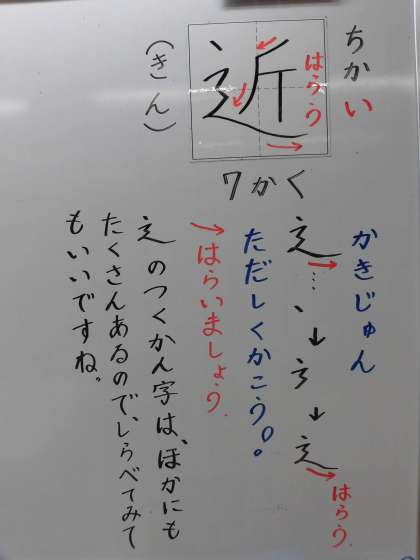 ちかい
近
はらう
(きん)
7かく
かきじゅん
⻌…、↓⻌↓⻌
はらう。
ただしくかこう。
→はらいましょう。
⻌のつくかん字は、ほかにも
たくさんあるので、しらべてみて
もいいですね。